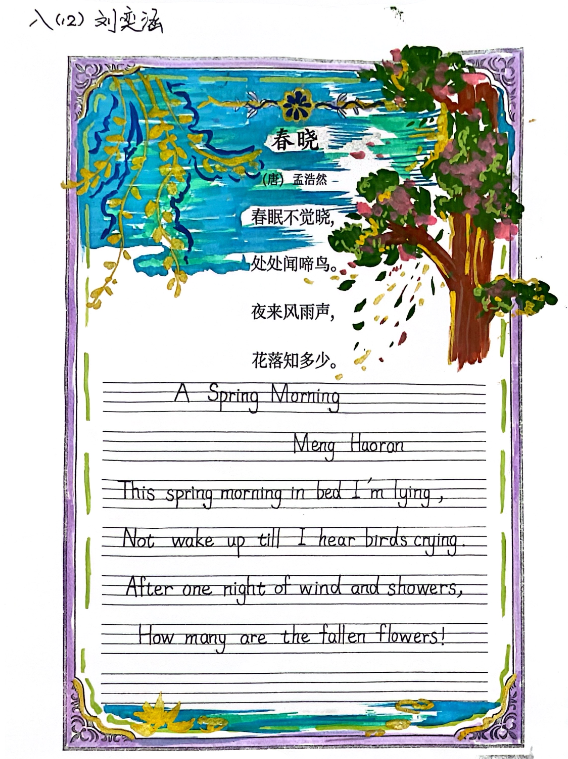 八(12) 刘奕涵
春晓
(唐) 孟浩然
春眠不觉晓,
处处闻啼鸟。
夜来风雨声,
花落知多少。
A Spring Morning
Meng Haoran
This spring morning in bed I'm lying,
Not wake up till I hear birds crying.
After one night of wind and showers,
How many are the fallen flowers!